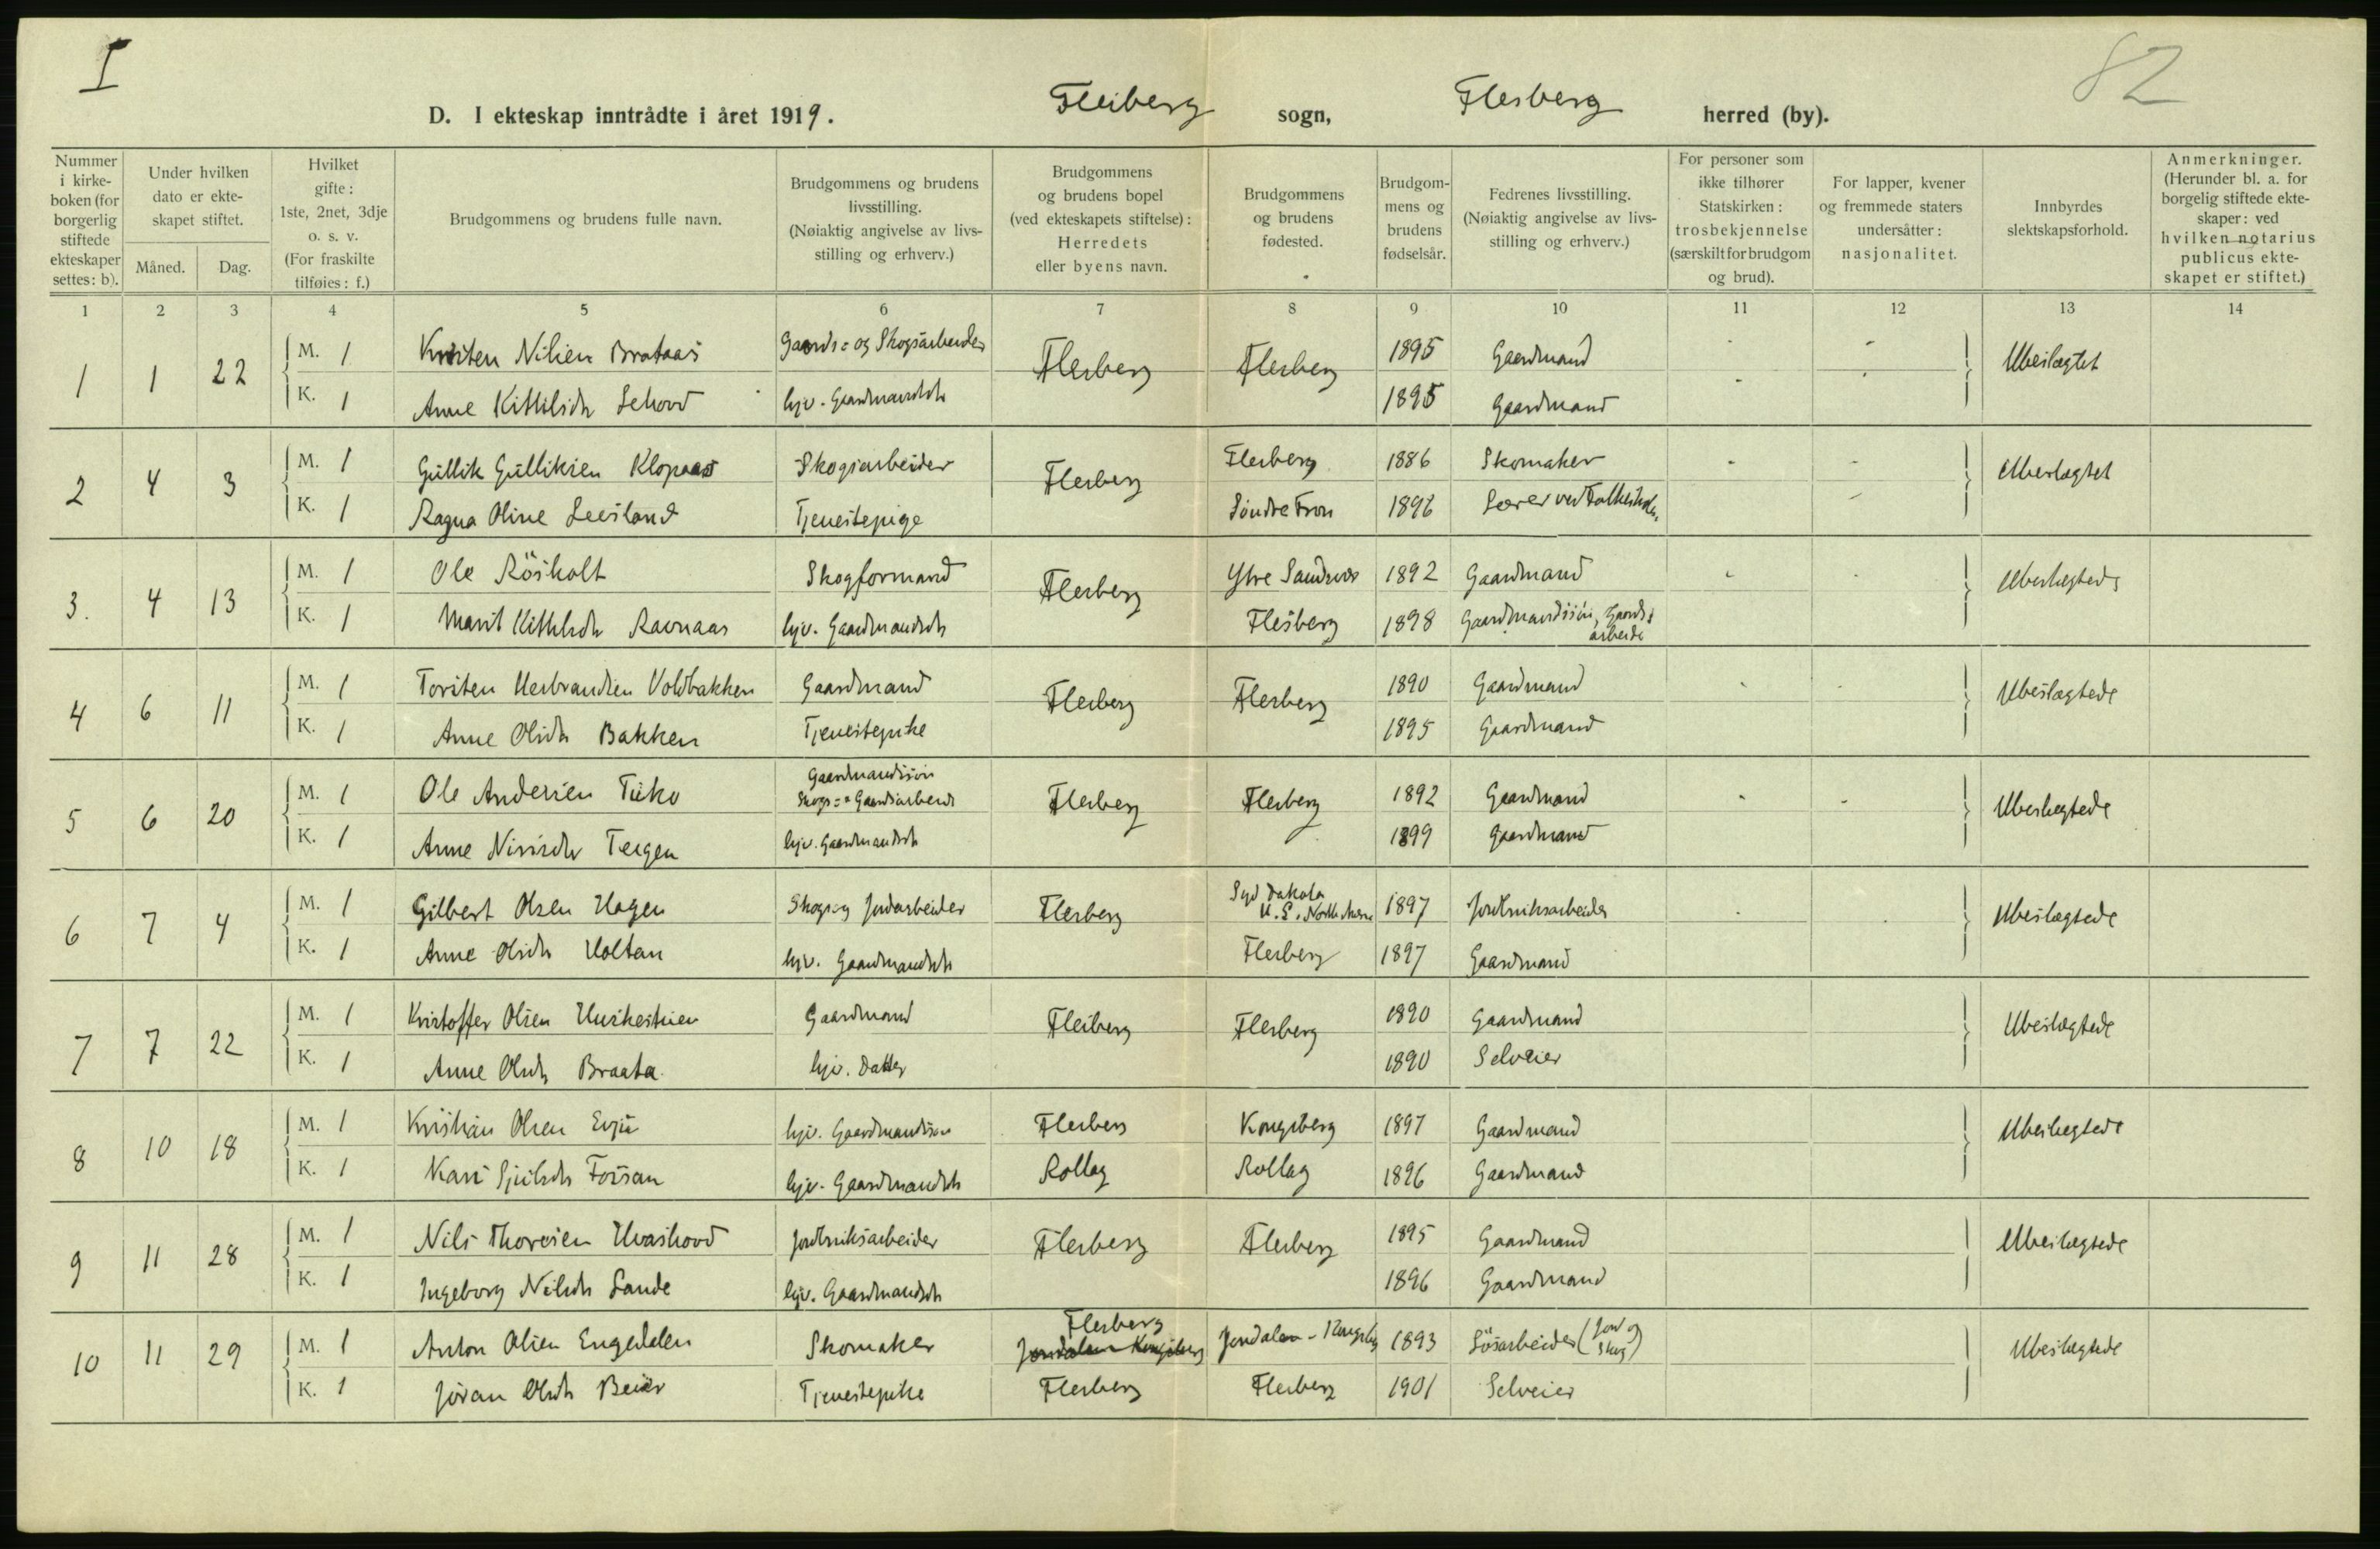 I
82
D. I ekteskap inntrådte i året 1919. Flesberg sogn, Flesberg herred (by).
Nummer i kirke-boken (for borgerlig stiftede ekteskaper settes: b).
Under hvilken dato er ekte-skapet stiftet.
Måned. Dag.
Hvilket gifte: 1ste, 2net, 3dje o. s. v. (For fraskilte tilføies: f.)
Brudgommens og brudens fulle navn.
Brudgommens og brudens livsstilling. (Nøiaktig angivelse av livs-stilling og erhverv.)
Brudgommens og brudens bopel (ved ekteskapets stiftelse): Herredets eller byens navn.
Brudgommens og brudens fødested.
Brudgom-mens og brudens fødselsår.
Fedrenes livsstilling. (Nøiaktig angivelse av livs-stilling og erhverv.)
For personer som ikke tilhører Statskirken: trosbekjennelse (særskilt for brudgom og brud).
For lapper, kvener og fremmede staters undersåtter: nasjonalitet.
Innbyrdes slektskapsforhold.
Anmerkninger. (Herunder bl. a. for borgelig stiftede ekte-skaper: ved hvilken notarius publicus ekte-skapet er stiftet.)
1 2 3 4 5 6 7 8 9 10 11 12 13 14
1 1 22 M. 1 Kristen Nilsen Brataas Gaards= og Skogsarbeider Flesberg Flesberg 1895 Gaardmand - - Ubeslægtet
K. 1 Anne Kittilsdtr Lehovd hjv. Gaardmandsdtr 1895 Gaardmand -
2 4 3 M. 1 Gullik Gulliksen Klopaas Skogsarbeider Flesberg Flesberg 1886 Skomaker - - Ubeslægtet
K. 1 Ragna Oline Leesland Tjenestepige Søndre Fron 1896 Lærer ved Folkeskolen -
3. 4 13 M. 1 Ole Røsholt Skogformand Flesberg Ytre Sandsvær 1892 Gaardmand - - Ubeslægtede
K. 1 Marit Kittilsdtr Ravnaas hjv. Gaardmandsdtr Flesberg 1898 Gaardmandssøn, Gaards=
arbeider
4 6 11 M. 1 Torsten Herbrandsen Voldbakken Gaardmand Flesberg Flesberg 1890 Gaardmand - - Ubeslægtede
K. 1 Anne Olsdtr Bakken Tjenestepike 1895 Gaardmand
5 6 20 M. 1 Ole Andersen Tuko Gaardmandssøn
Skogs= = Gaardsarbeider Flesberg Flesberg 1892 Gaardmand - - Ubeslægtede
K. 1 Anne Nirisdtr Teigen hjv. Gaardmandsdtr 1899 Gaardmand
6 7 4 M. 1 Gilbert Olsen Hagen Skogs og Jordarbeider Flesberg Syd Dakota
U.S. 1897 Jordbruksarbeider - - Ubeslægtede
K. 1 Anne Olsdtr Holtan hjv. Gaardmandsdtr Flesberg 1897 Gaardmand
7 7 22 M. 1 Kristoffer Olsen Gaardmand Flesberg Flesberg 1890 Gaardmand Ubeslægtede
K. 1 Anne Olsdtr Braata hjv. Datter 1890 Selveier
8 10 18 M. 1 Kristian Olsen Evju hjv. Gaardmandssøn Flesberg Kongsberg 1897 Gaardmand Ubeslægtede
K. 1 Kari Gjulsdtr Fossan hjv. Gaardmandsdtr Rollag Rollag 1896 Gaardmand
9 11 28 M. 1 Nils Thoresen Hvashovd Jordbruksarbeider Flesberg Flesberg 1895 Gaardmand Ubeslægtede
K. 1 Ingeborg Nilsdtr Lande hjv. Gaardmandsdtr 1896 Gaardmand
10 11 29 M. 1 Anton Olsen Engedalen Skomaker Flesberg
Jondalen Kongsberg Jondalen - Kongsberg 1893 Løsarbeider (Jord og
Skog) Ubeslægtede
K. 1 Jøran Olsdtr Beiør Tjenestepike Flesberg Flesberg 1901 Selveier